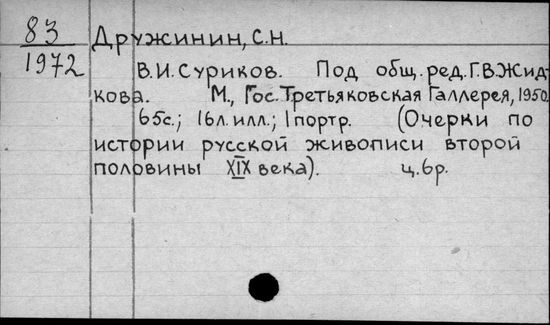 83
1972
Дружинин, С.Н.
В.И.Суриков. Под общ.ред.Г.В.Жид-
кова. М., Гос.Третьяковская Галлерея, 1950.
65с.; 16л.илл.; 1портр. (Очерки по
истории русской живописи второй
половины XIX века). ц.6р.